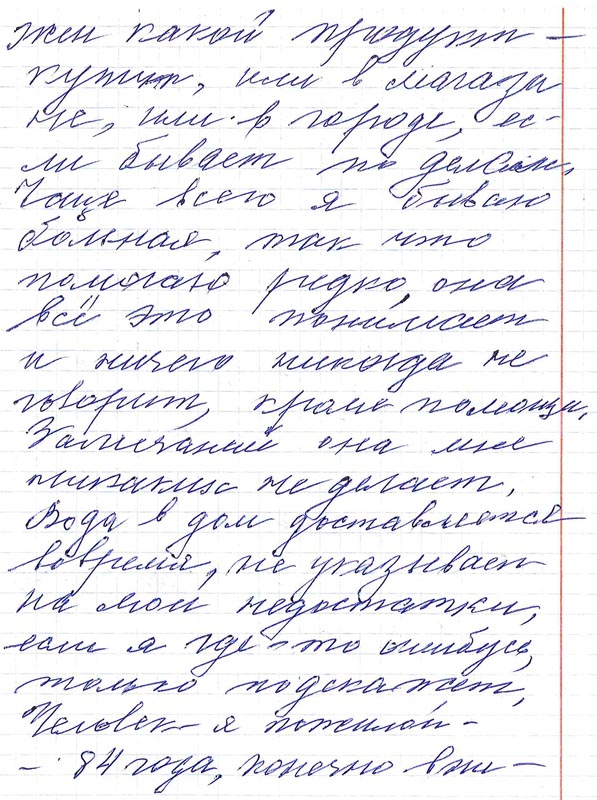 жен какой продукт –
купит, или в магази
не, или в городе, ес-
ли бывает по делам,
Чаще всего я бываю
больная, так что
помогаю редко, она
всё это понимает
и ничего никогда не
говорит, кроме помощи.
Замечаний она мне
никаких не делает,
Вода в дом доставляется
вовремя, не указывает
на мои недостатки,
если я где-то ошибусь,
только подскажет,
Человек я пожилой –
– 84 года, конечно вни –